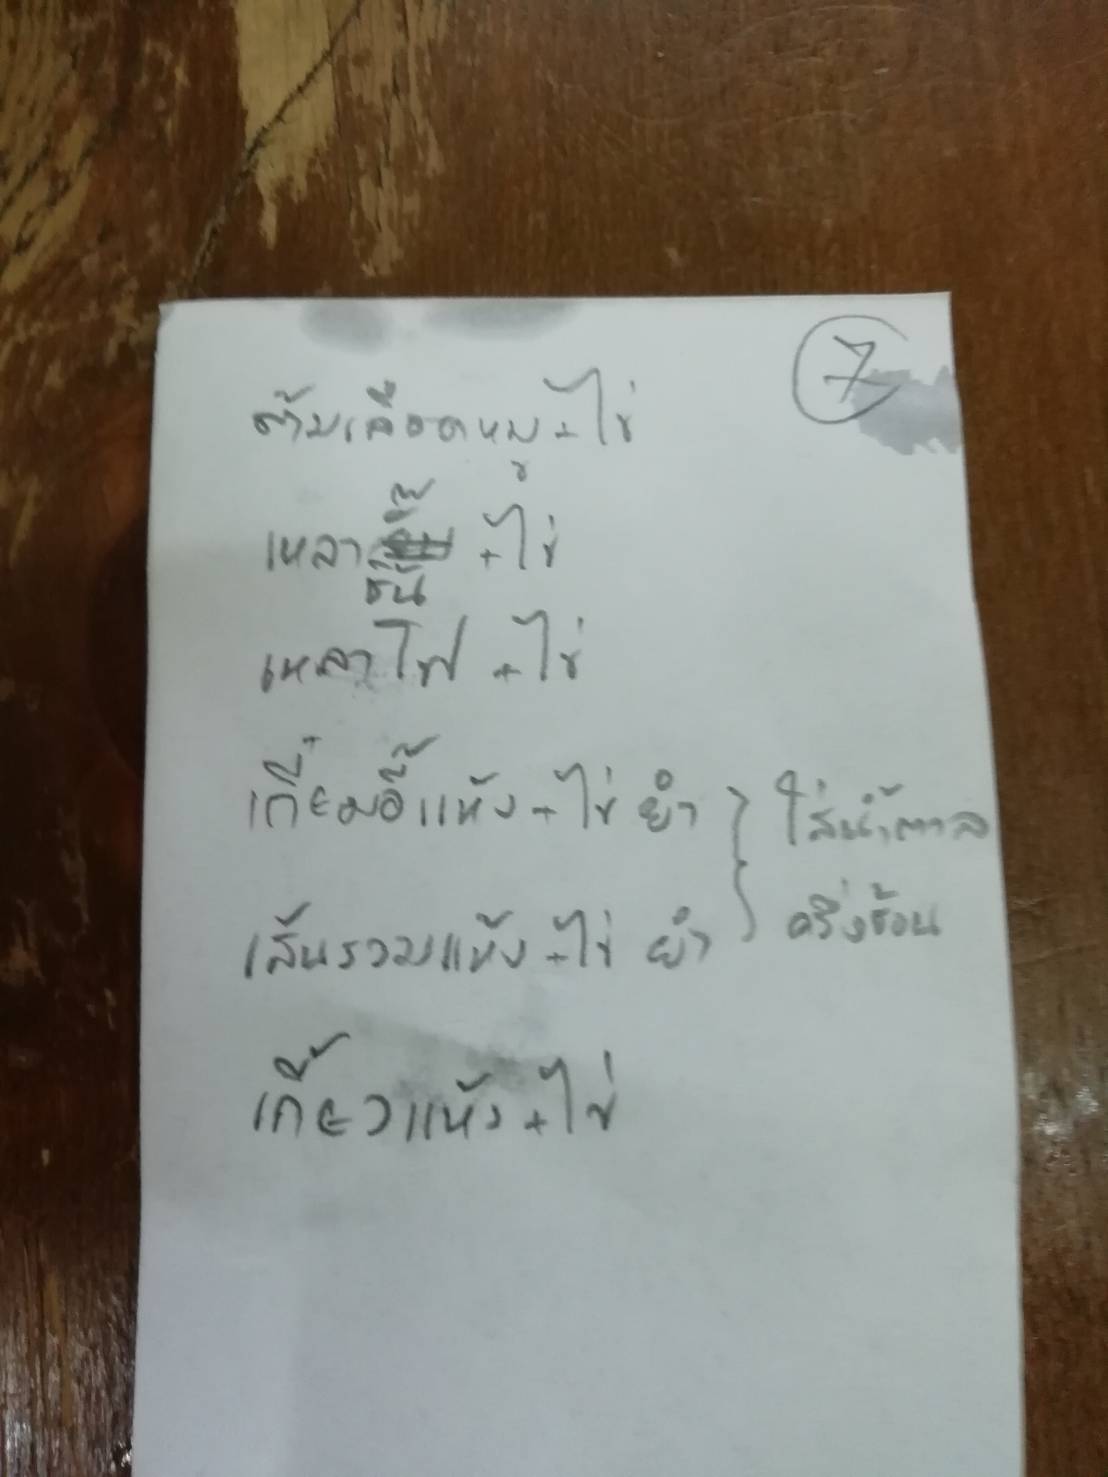 7
ต้มเลือดหมู+ไข่
เหลา +ไข่
ชั้น
เหลาไฟ +ไข่
เกี้ยมอี๋แห้ง+ไข่ ยำ } ใส่น้ำตาล
เส้นรวมแห้ง+ไข่ ยำ } ครึ่งช้อน
เกี้ยวแห้ง+ไข่